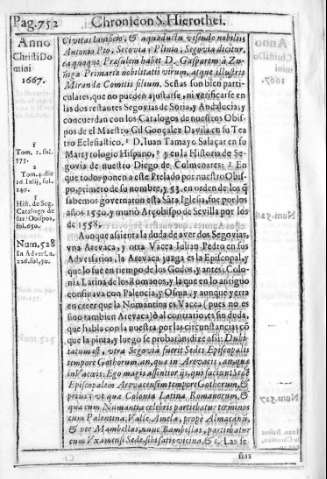 Pag.752 Chronicon S. Hierothei.
Anno
Christi Do
mini
1667.
1
Tom. 1. fol.
2
Tom. 4. die
3
Hist. de Seg.
Catalogo de
sus Obispos,
fol. 650.
Num. 528
In Adver. n.
Civitas lampio, & aquaductu visendo nobilis
Antonio Pio, Segovia & Plinio, Segovia dicitur.
eaquoque Præsulem habet D. Gasparem à Zu-
ñiga Primaria nobilitatis virum, atque illustris
Miranda Comitis filium. Señas son bien par-
ticulares, que no pueden ajustarse, ni verificarse en
las dos restantes Segovias de Soria, y Andalucia; y
concuerdan con los Catalogos de nuestros Obis-
pos de el Maestro Gil Gonçalez Davila en su Tea
tro Eclesiastico. 1 D. Iuan Tamayo Salaçar en su
Martyrologio Hispano, 2 y en la Historia de Se-
govia de nuestro Diego de Colmenares: 3 En
que todos ponen a este Prelado por nuestro Obis-
po, primero de su nombre, y 53. en orden de los q̃
sabemos governaron esta Sāta Iglesia, fue por los
años 1550. y murió Arçobispo de Sevilla por los
de 1556.
Aunque asienta la duda de aver dos Segovias,
vna Arevaca, y otra Vacea Iulian Pedro en sus
Adversarios, la Arevaca juzga es la Episcopal, y
que lo fue en tiempo de los Godos, y antes Colo-
nia Latina de los Romanos, y la que en lo antiguo
confinava con Palencia, y Osma; y aunque yerra
en creer que la Numantina es Vacea (pues no es
sino tambien Arevaca) ò al contrario, es sin duda,
que habla con la nuestra por las circunstancias cō
que la pinta, y luego se probaràn: dize assi: Dubi-
tatum est, vtra Segovia fuerit Sedes Episcopalis
tempore Gothorum, an quæ in Arevacis, an quæ
in Vaceis. Ego magis assentior ijs, qui faciunt Sedē
Episcopalem Arevacensem tempore Gothorum, &
prius; vt quæ Colonia Latina Romanorum, &
quæ cum Numantia celebris partibatur terminos
cum Palentina Valle Amela, prope Almaçano,
& per Mambellas, nunc Rambellas, partibatur
cum Vxamensi Sede sibi satis vicina, &c. Las se
ñas